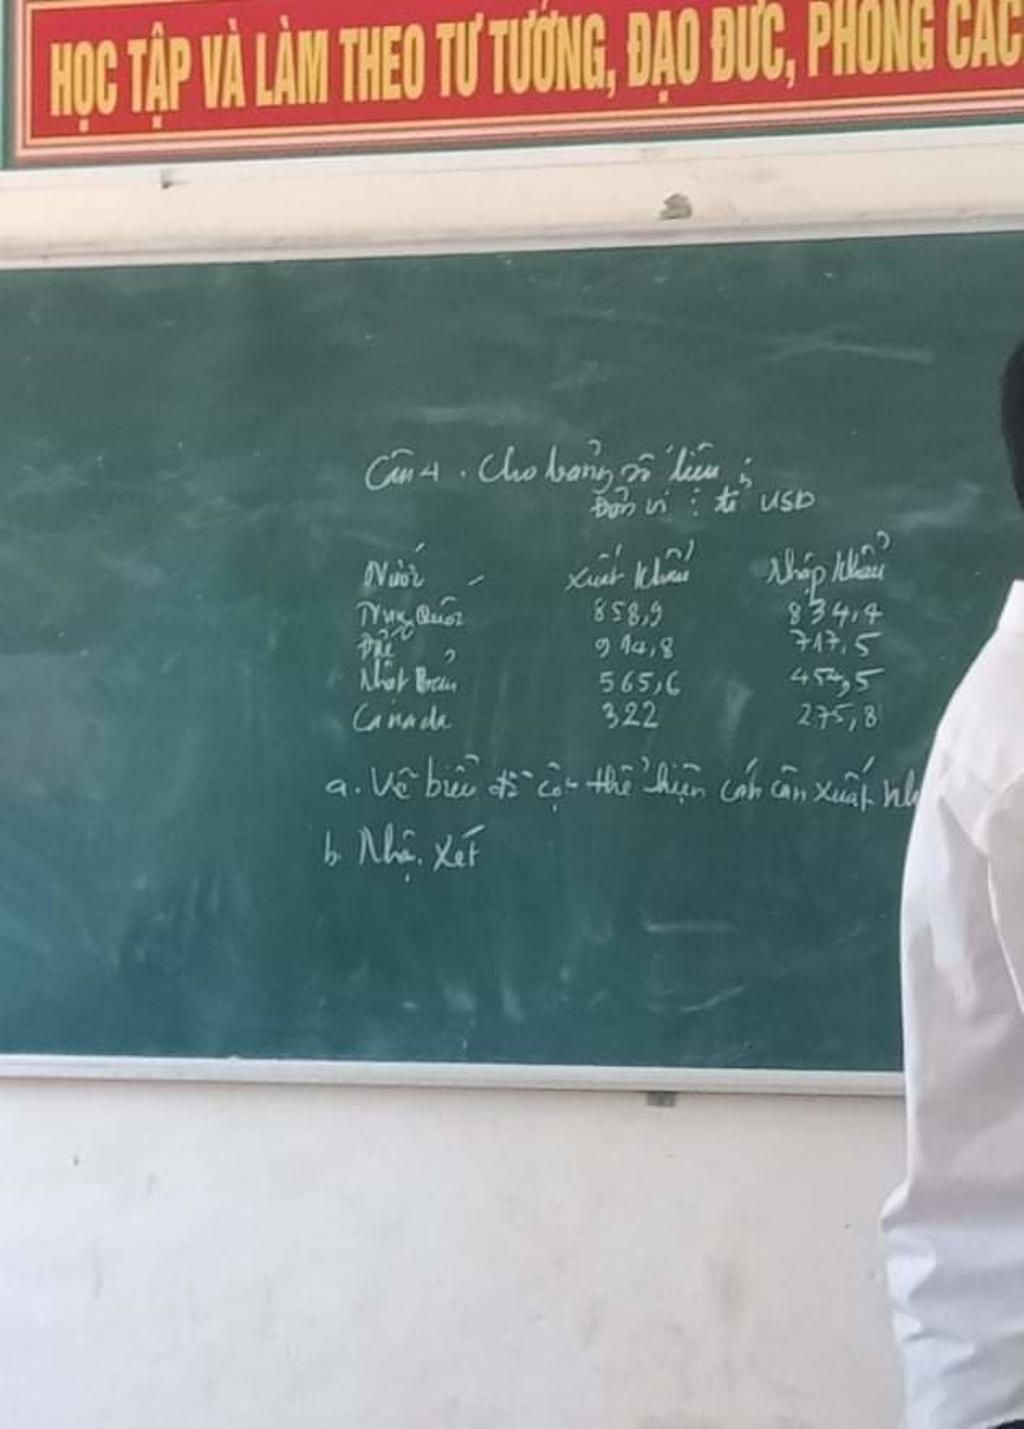 HỌC TẬP VÀ LÀM THEO TƯ TƯỞNG, ĐẠO ĐỨC, PHONG CÁC
Câu 4. Cho bảng số liệu :
Đơn vị : tỉ USD
Nước Xuất khẩu Nhập khẩu
Trung Quốc 858,9 834,4
914,8 717,5
Nhật Bản 565,6 454,5
Canada 322 275,8
a. Vẽ biểu đồ cột thể hiện cán cân xuất nh
b. Nhận xét